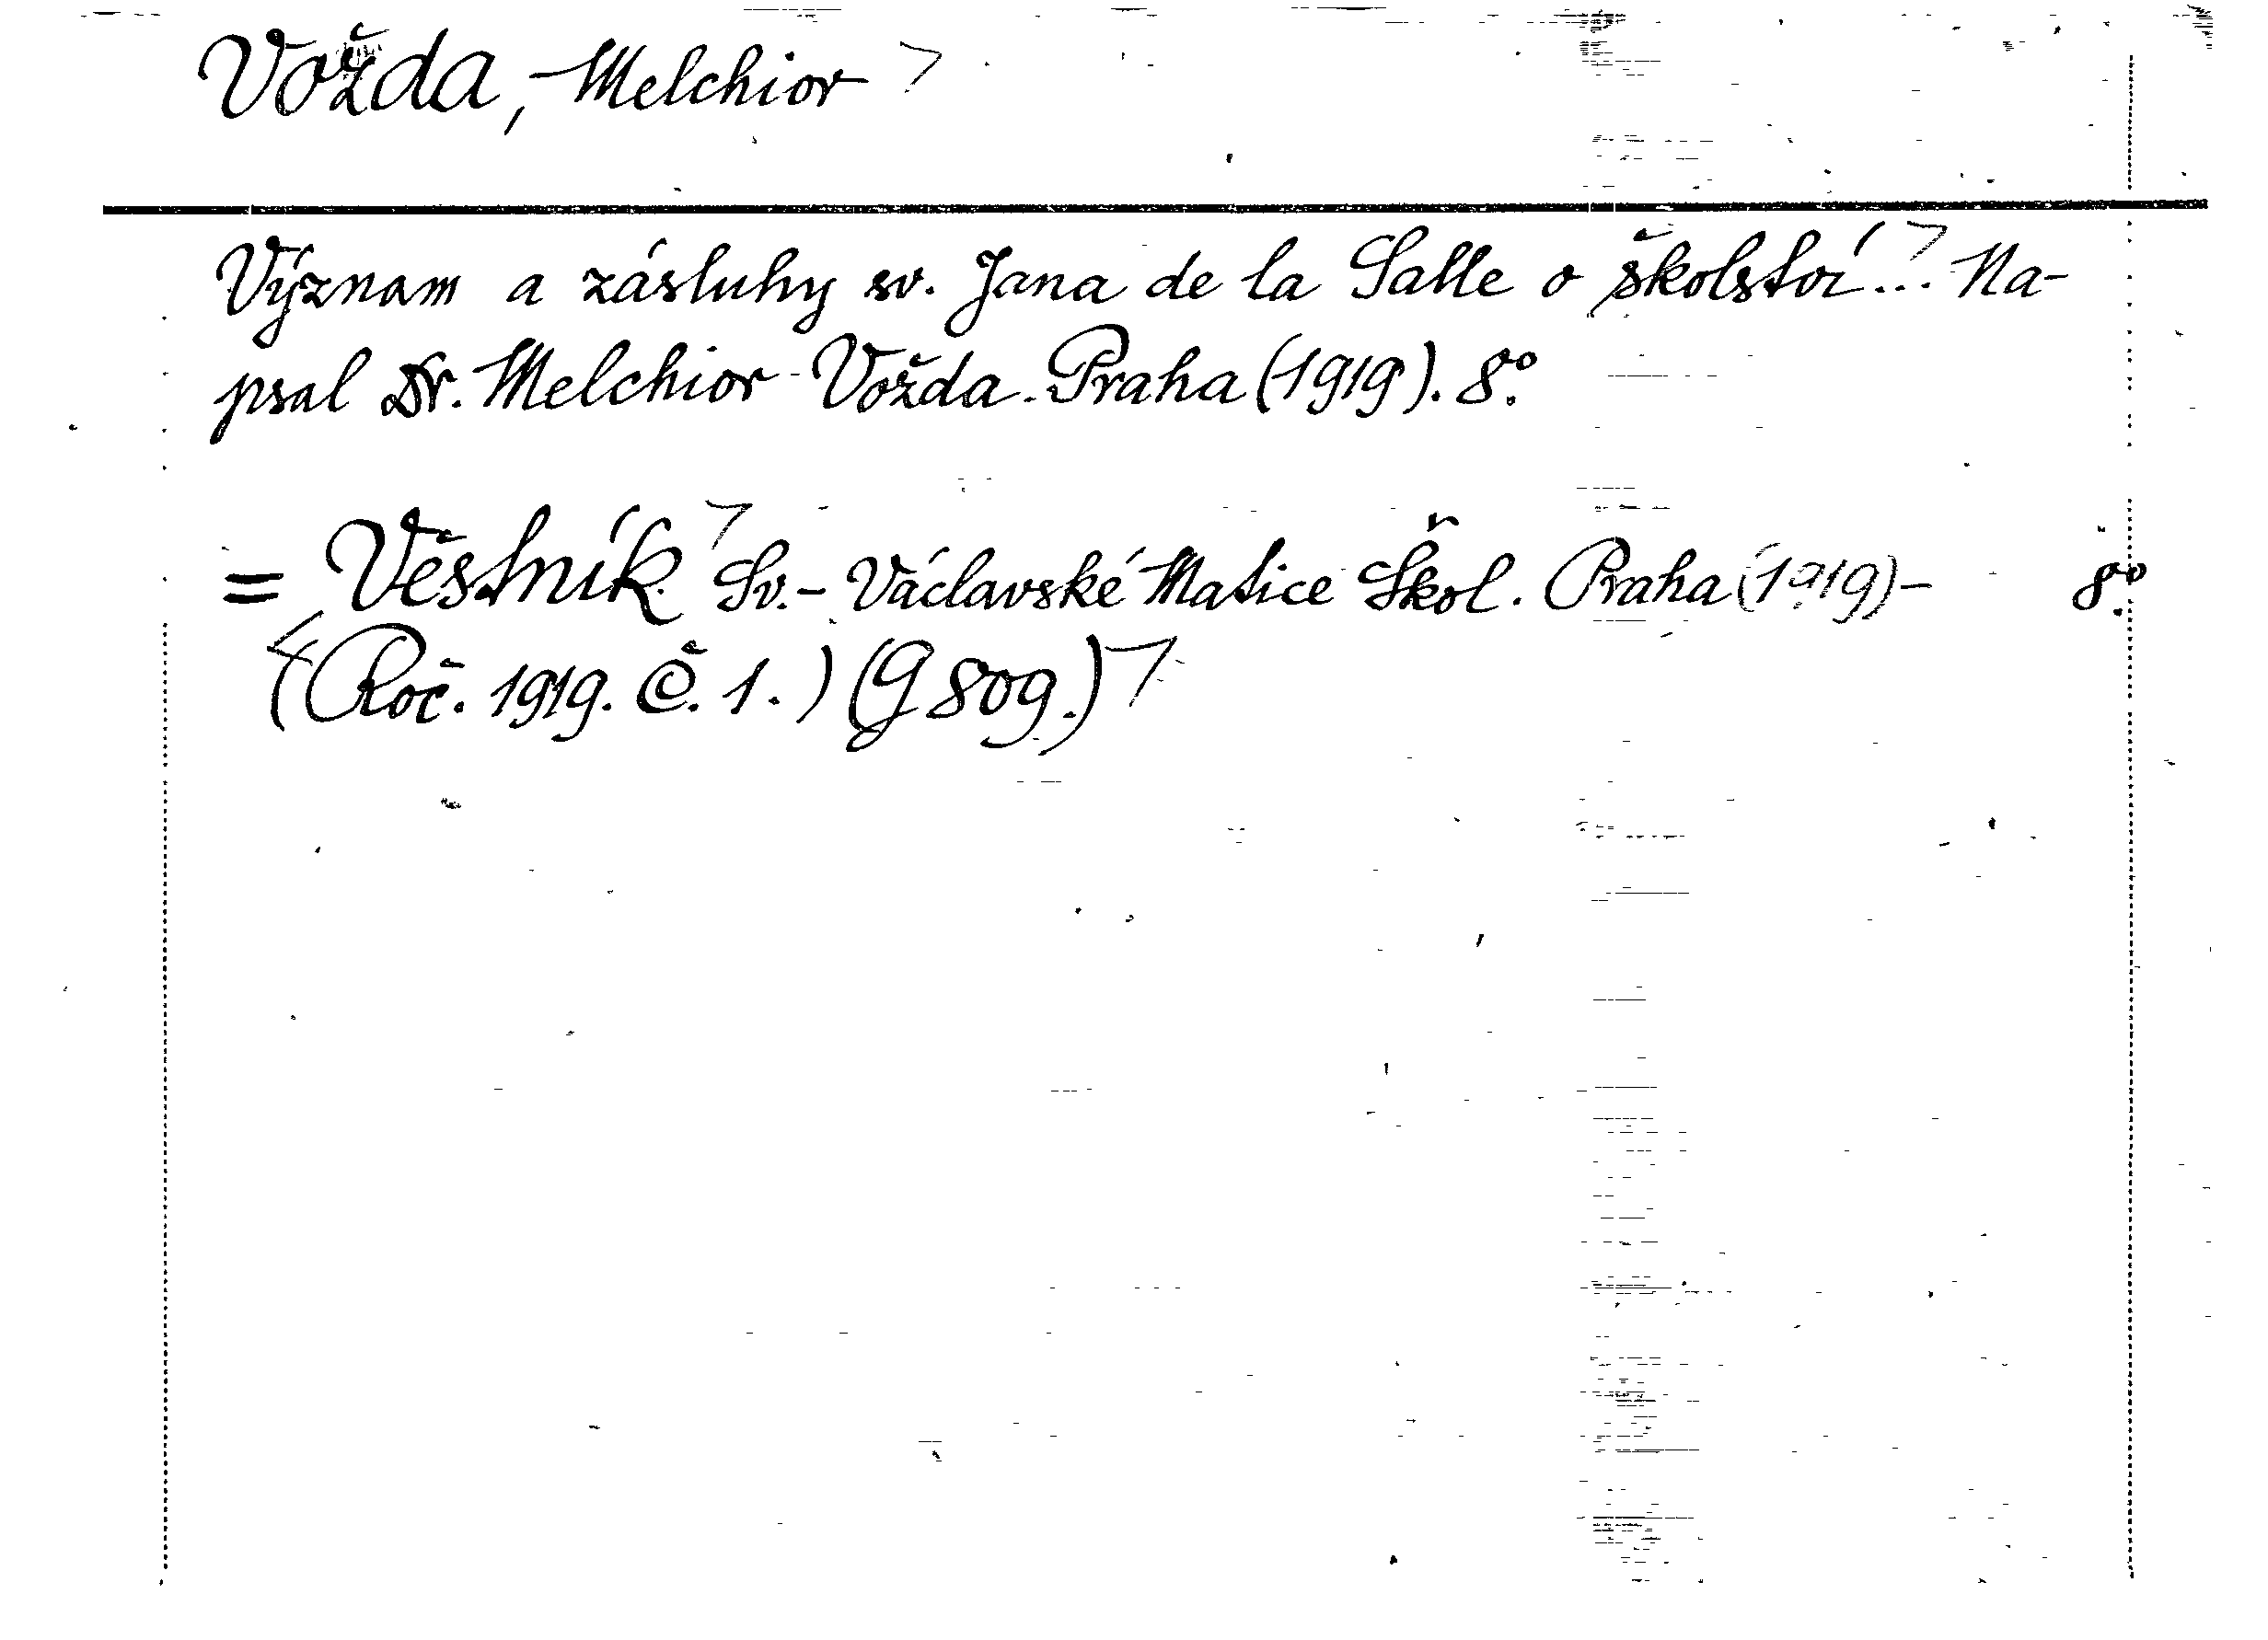 Vožda, Melchior
Význam a zásluhy sv. Jana de la Salle o školství... Na-
psal Dr. Melchior Vožda. Praha (1919). 8°.
= Věstník Sv.-Václavské Matice Škol. Praha (1919)- 8°.
(Roč. 1919. Č. 1.) (G 809.)